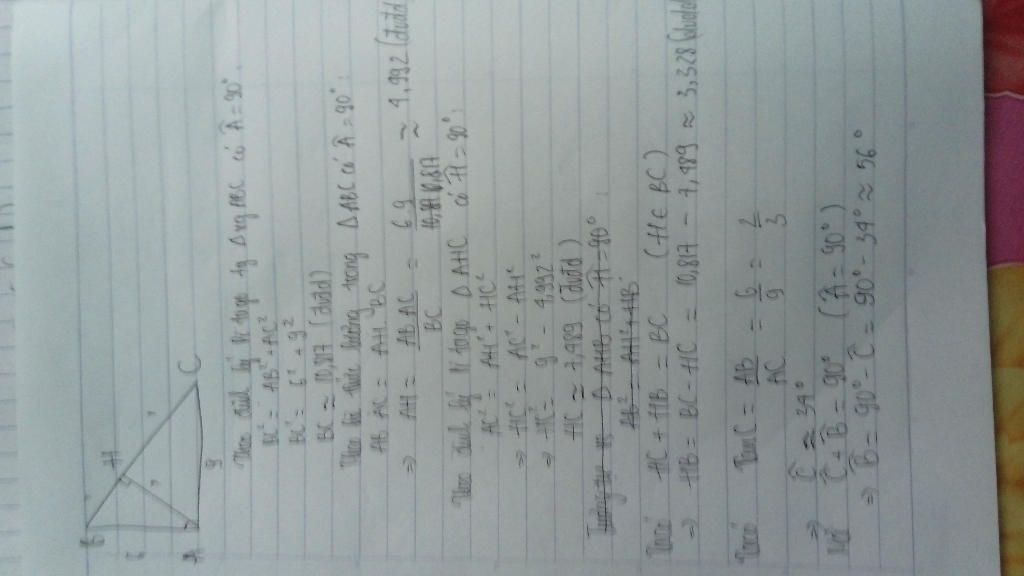 B
H
C
6
A
9
Theo định lý Pi tago tg Δ vg ABC có Â = 90°.
BC² = AB² + AC²
BC² = 6² + 9²
BC ≈ 10,817 (đvđd)
Theo hệ thức lượng trong Δ ABC có Â = 90°:
AB AC = AH BC
⇒ AH = AB AC / BC = 6 9 / 10,817 ≈ 4,992 (đvđd)
Theo định lý Pi tago Δ AHC có Ĥ = 90°:
AC² = AH² + HC²
⇒ HC² = AC² - AH²
⇒ HC² = 9² - 4,992²
HC ≈ 7,489 (đvđd)
Δ AHB có Ĥ = 90°:
AB² = AH² + HB²
Ta có HC + HB = BC (H ∈ BC)
⇒ HB = BC - HC = 10,817 - 7,489 ≈ 3,328 (đvđd)
Ta có Tan C = AB / AC = 6 / 9 = 2 / 3
⇒ Ĉ ≈ 34°
Mà Ĉ + B̂ = 90° (Â = 90°)
⇒ B̂ = 90° - Ĉ = 90° - 34° ≈ 56°